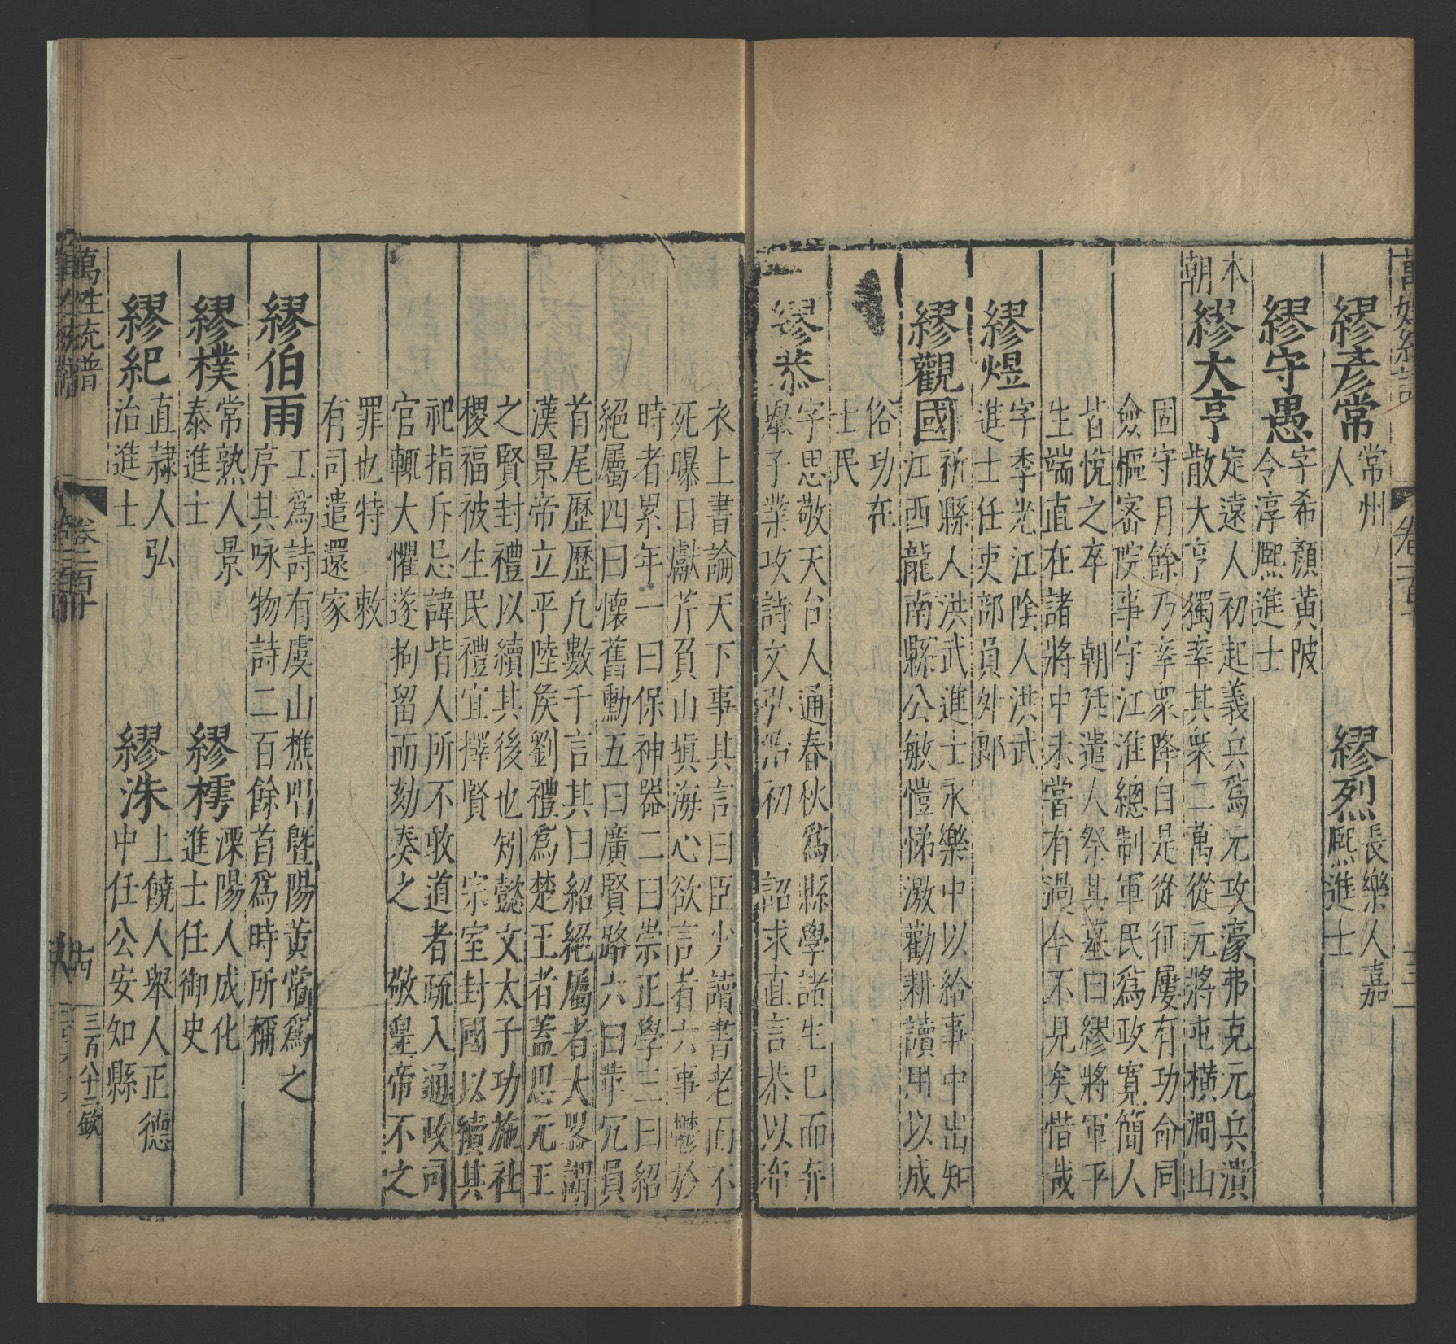 萬姓統譜
卷一百十
繆彥常
常州
人
繆烈
長樂人嘉
熙進士
繆守愚
字希顏黃陂
令淳熙進士
本朝
繆大亨
定遠人初起義兵爲元攻濠弗克元兵潰
散大亨獨率其衆二萬從元將屯橫澗山
固守月餘乃率衆降自是從征屢有功命同
僉樞密院事守江淮總制軍民爲政寬簡人
皆悅之卒　朝廷遣人祭其墓曰繆將軍平
生端直在諸將中未嘗有過今不見矣惜哉
繆煜
字季光江陰人洪武
進士任吏部員外郎
繆觀國
祈縣人洪武進士永樂中以給事中出知
江西龍南縣公敏愷悌激勸耕讀用以成
俗功在
士民
繆恭
字思敬天台人通春秋爲縣學諸生已而弃
舉子業攻詩文弘治初　詔求直言恭以布
衣上書論天下事其言曰臣少讀書老而不
死曝日獻芹負山塡海心欲言者六事鬱於
時者累年一曰保神器二曰崇正學三曰紹
絕屬四曰懷舊勳五曰廣賢路六曰革冗員
首尾歷歷凢數千言其曰紹絕屬者大畧謂
漢景帝立平陸侯劉禮爲楚王者蓋思元王
之賢封禮以續其後也矧懿文太子功施社
稷福被生民禮宜擇賢　宗室封國以續其
祀指斥忌諱皆人所不敢道者疏入通政司
官輒大懼遂拘留而劾奏之　敬皇帝不之
罪也特　敕
有司遣還家
繆伯雨
工爲詩有虞山樵唱曁陽黃常爲之
序其咏物詩二百餘首爲時所稱
繆樸
常熟人景
泰進士
繆樗
溧陽人成化
進士任御史
繆紀
直隷人弘
治進士
繆洙
上饒人舉人正德
中任公安知縣
萬姓統譜
卷一百十
三百八十二